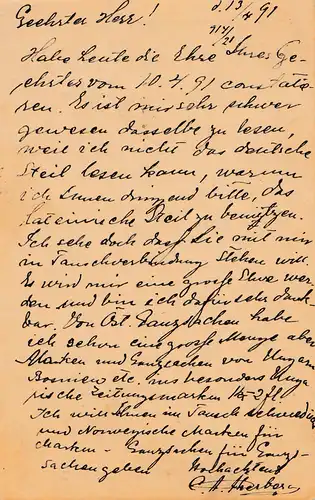 Geehrter Herr! d. 13/4 91
Habe heute die Ehre Ihres Ge-
ehrter vom 10.4.91 constatie-
ren. Es ist mir sehr schwer
gewesen dasselbe zu lesen,
weil ich nicht das deutsche
Steil lesen kann, warum
ich Ihnen dringend bitte, das
Lateinische Steil zu benützen.
Ich sehe doch dass Sie mit mir
in Tauschverbindung stehen will.
Es wird mir eine große Ehre wer-
den und bin ich dafür sehr dank-
bar. Von Öst. Ganzsachen habe
ich schon eine große Menge aber
Marken und Ganzsachen von Ungarn
Bosnien etc. besonders Unga-
rische Zeitungsmarken
Ich will Ihnen im Tausch schwedische
und Norwegische Marken für
Marken - Ganzsachen für Ganz-
sachen geben Hochachtend